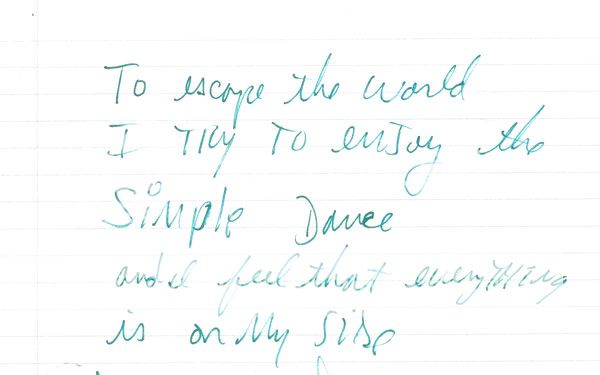 To escape the world
I TRY TO enjoy the
Simple Dance
and I feel that everyTHING
is on My SIDe